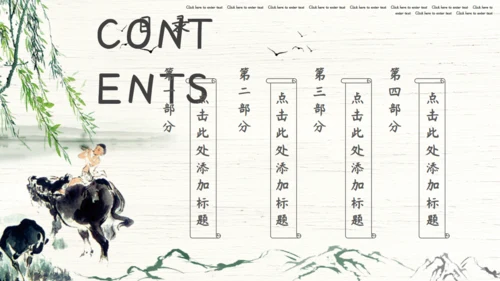 Click here to enter text Click here to enter text Click here to enter text Click here to enter text Click here to enter text Click here to enter text Click here to
enter text Click here to enter text Click here to enter text
目录
CONT
ENTS
第一部分
点击此处添加标题
第二部分
点击此处添加标题
第三部分
点击此处添加标题
第四部分
点击此处添加标题